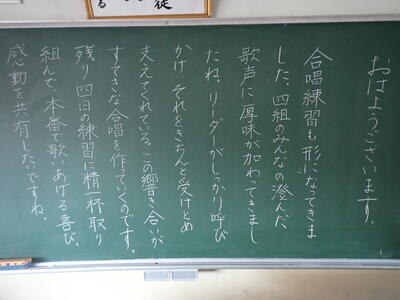 おはようございます。
合唱練習も形になってきま
した。四組のみんなの澄んだ
歌声に厚味が加わってきまし
たね。リーダーがしっかり呼び
かけ、それをきちんと受けとめ
支えてくれている。この響き合いが
すてきな合唱を作っていくのです。
残り四日の練習に精一杯取り
組んで、本番で歌いあげる喜び、
感動を共有したいですね。